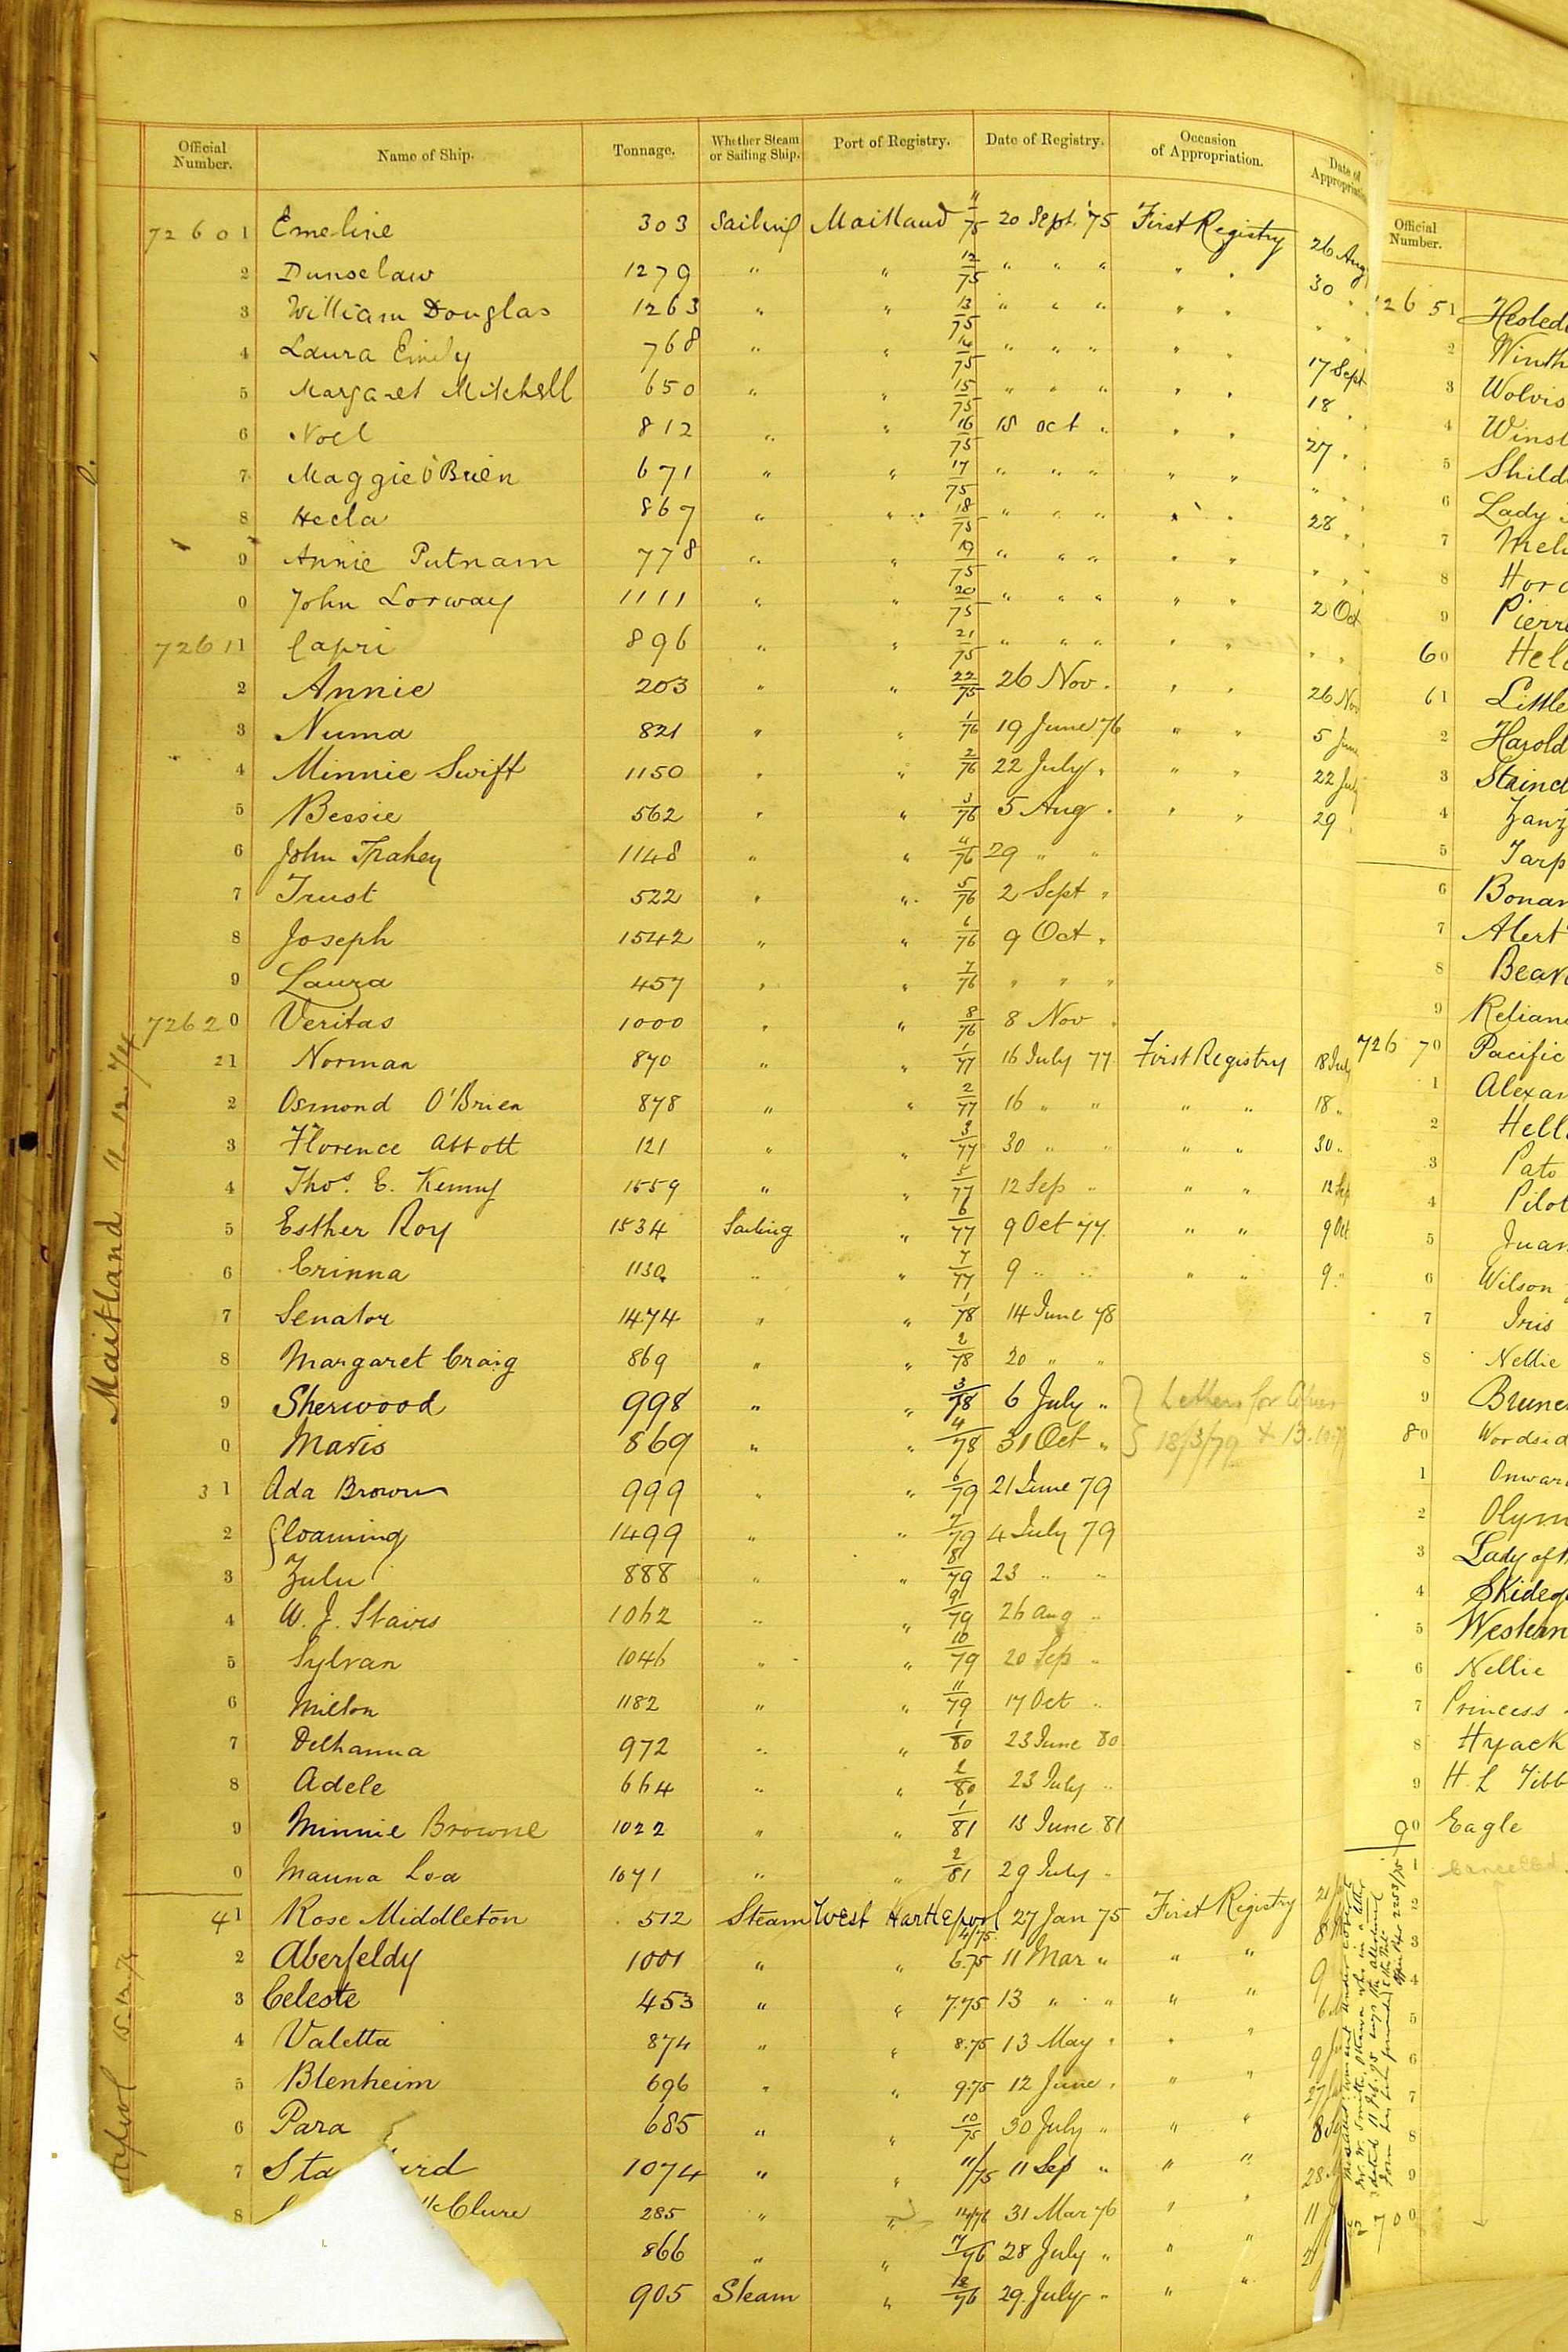 Official Number. Name of Ship. Tonnage. Whether Steam or Sailing Ship. Port of Registry. Date of Registry. Occasion of Appropriation. Date of
72601 Emeline 303 Sailing Maitland 11/75 20 Sept. '75 First Registry 26 Aug
2 Dunselaw 1279 " " 12/75 " " " " " 30 "
3 William Douglas 1263 " " 13/75 " " " " " " "
4 Laura Emily 768 " " 14/75 " " " " " 17 Sept
5 Margaret Mitchell 650 " " 15/75 " " " " " 18 "
6 Noel 812 " " 16/75 18 Oct " " " 27 "
7 Maggie O'Brien 671 " " 17/75 " " " " " " "
8 Hecla 867 " " 18/75 " " " " " 28 "
9 Annie Putnam 778 " " 19/75 " " " " " " "
0 John Lorway 1111 " " 20/75 " " " " " 2 Oct
72611 Capri 896 " " 21/75 " " " " " " "
2 Annie 203 " " 22/75 26 Nov. " " 26 Nov
3 Numa 821 " " 1/76 19 June '76 " " 5 June
4 Minnie Swift 1150 " " 2/76 22 July " " " 22 July
5 Bessie 562 " " 3/76 5 Aug " " " 29
6 John Trahey 1148 " " 4/76 29 " "
7 Trust 522 " " 5/76 2 Sept "
8 Joseph 1542 " " 6/76 9 Oct "
9 Laura 457 " " 7/76 " " "
72620 Veritas 1000 " " 8/76 8 Nov "
21 Norman 870 " " 1/77 16 July 77 First Registry 18 July
2 Osmond O'Brien 878 " " 2/77 16 " " " " 18 "
3 Florence Abbott 121 " " 3/77 30 " " " " 30 "
4 Thos. E. Kenny 1559 " " 5/77 12 Sep " " " 12 Sep
5 Esther Roy 1534 Sailing " 6/77 9 Oct 77 " " 9 Oct
6 Erinna 1130 " " 7/77 9 " " " " 9 "
7 Senator 1474 " " 1/78 14 June 78
8 Margaret Craig 869 " " 2/78 20 " "
9 Sherwood 998 " " 3/78 6 July " Letters for
0 Maris 869 " " 4/78 31 Oct " 18/3/79 + 13.
31 Ada Brown 999 " " 6/79 21 June 79
2 Gloaming 1499 " " 7/79 4 July 79
3 Zulu 888 " " 8/79 23 " "
4 W. J. Stairs 1062 " " 9/79 26 Aug "
5 Sylvan 1046 " " 10/79 20 Sep "
6 Milton 1182 " " 11/79 17 Oct "
7 Delhanna 972 " " 1/80 23 June 80
8 Adele 664 " " 2/80 23 July "
9 Minnie Browne 1022 " " 1/81 13 June 81
0 Mauna Loa 1071 " " 2/81 29 July "
41 Rose Middleton 512 Steam West Hartlepool 4/75 27 Jan 75 First Registry
2 Aberfeldy 1001 " " 6.75 11 Mar " " "
3 Celeste 453 " " 7.75 13 " " " "
4 Valetta 874 " " 8.75 13 May " " "
5 Blenheim 696 " " 9.75 12 June " " "
6 Para 685 " " 10/75 30 July " " "
7 1074 " " 11/75 11 Sep " " "
8 McClure 285 " " 31 Mar 76 " "
866 " " 7/76 28 July " " "
905 Steam " 18/76 29 July " " "
Maitland 11.12.74
15.12.74
Official Number.
72651
2
3
4
5 Shild
6 Lady
7
8
9 Pierre
60
61 Little
2 Harold
3
4
5
6
7 Alert
8
9
72670 Pacific
1
2
3 Pato
4 Pilot
5 Juan
6 Wilson
7 Iris
8 Nellie
9
80
1
2
3 Lady of
4
5 Western
6 Nellie
7 Princess
8 Hyack
9 H. L
90 Eagle
1 Cancelled
2
3
4
5
6
7
8
9
72700